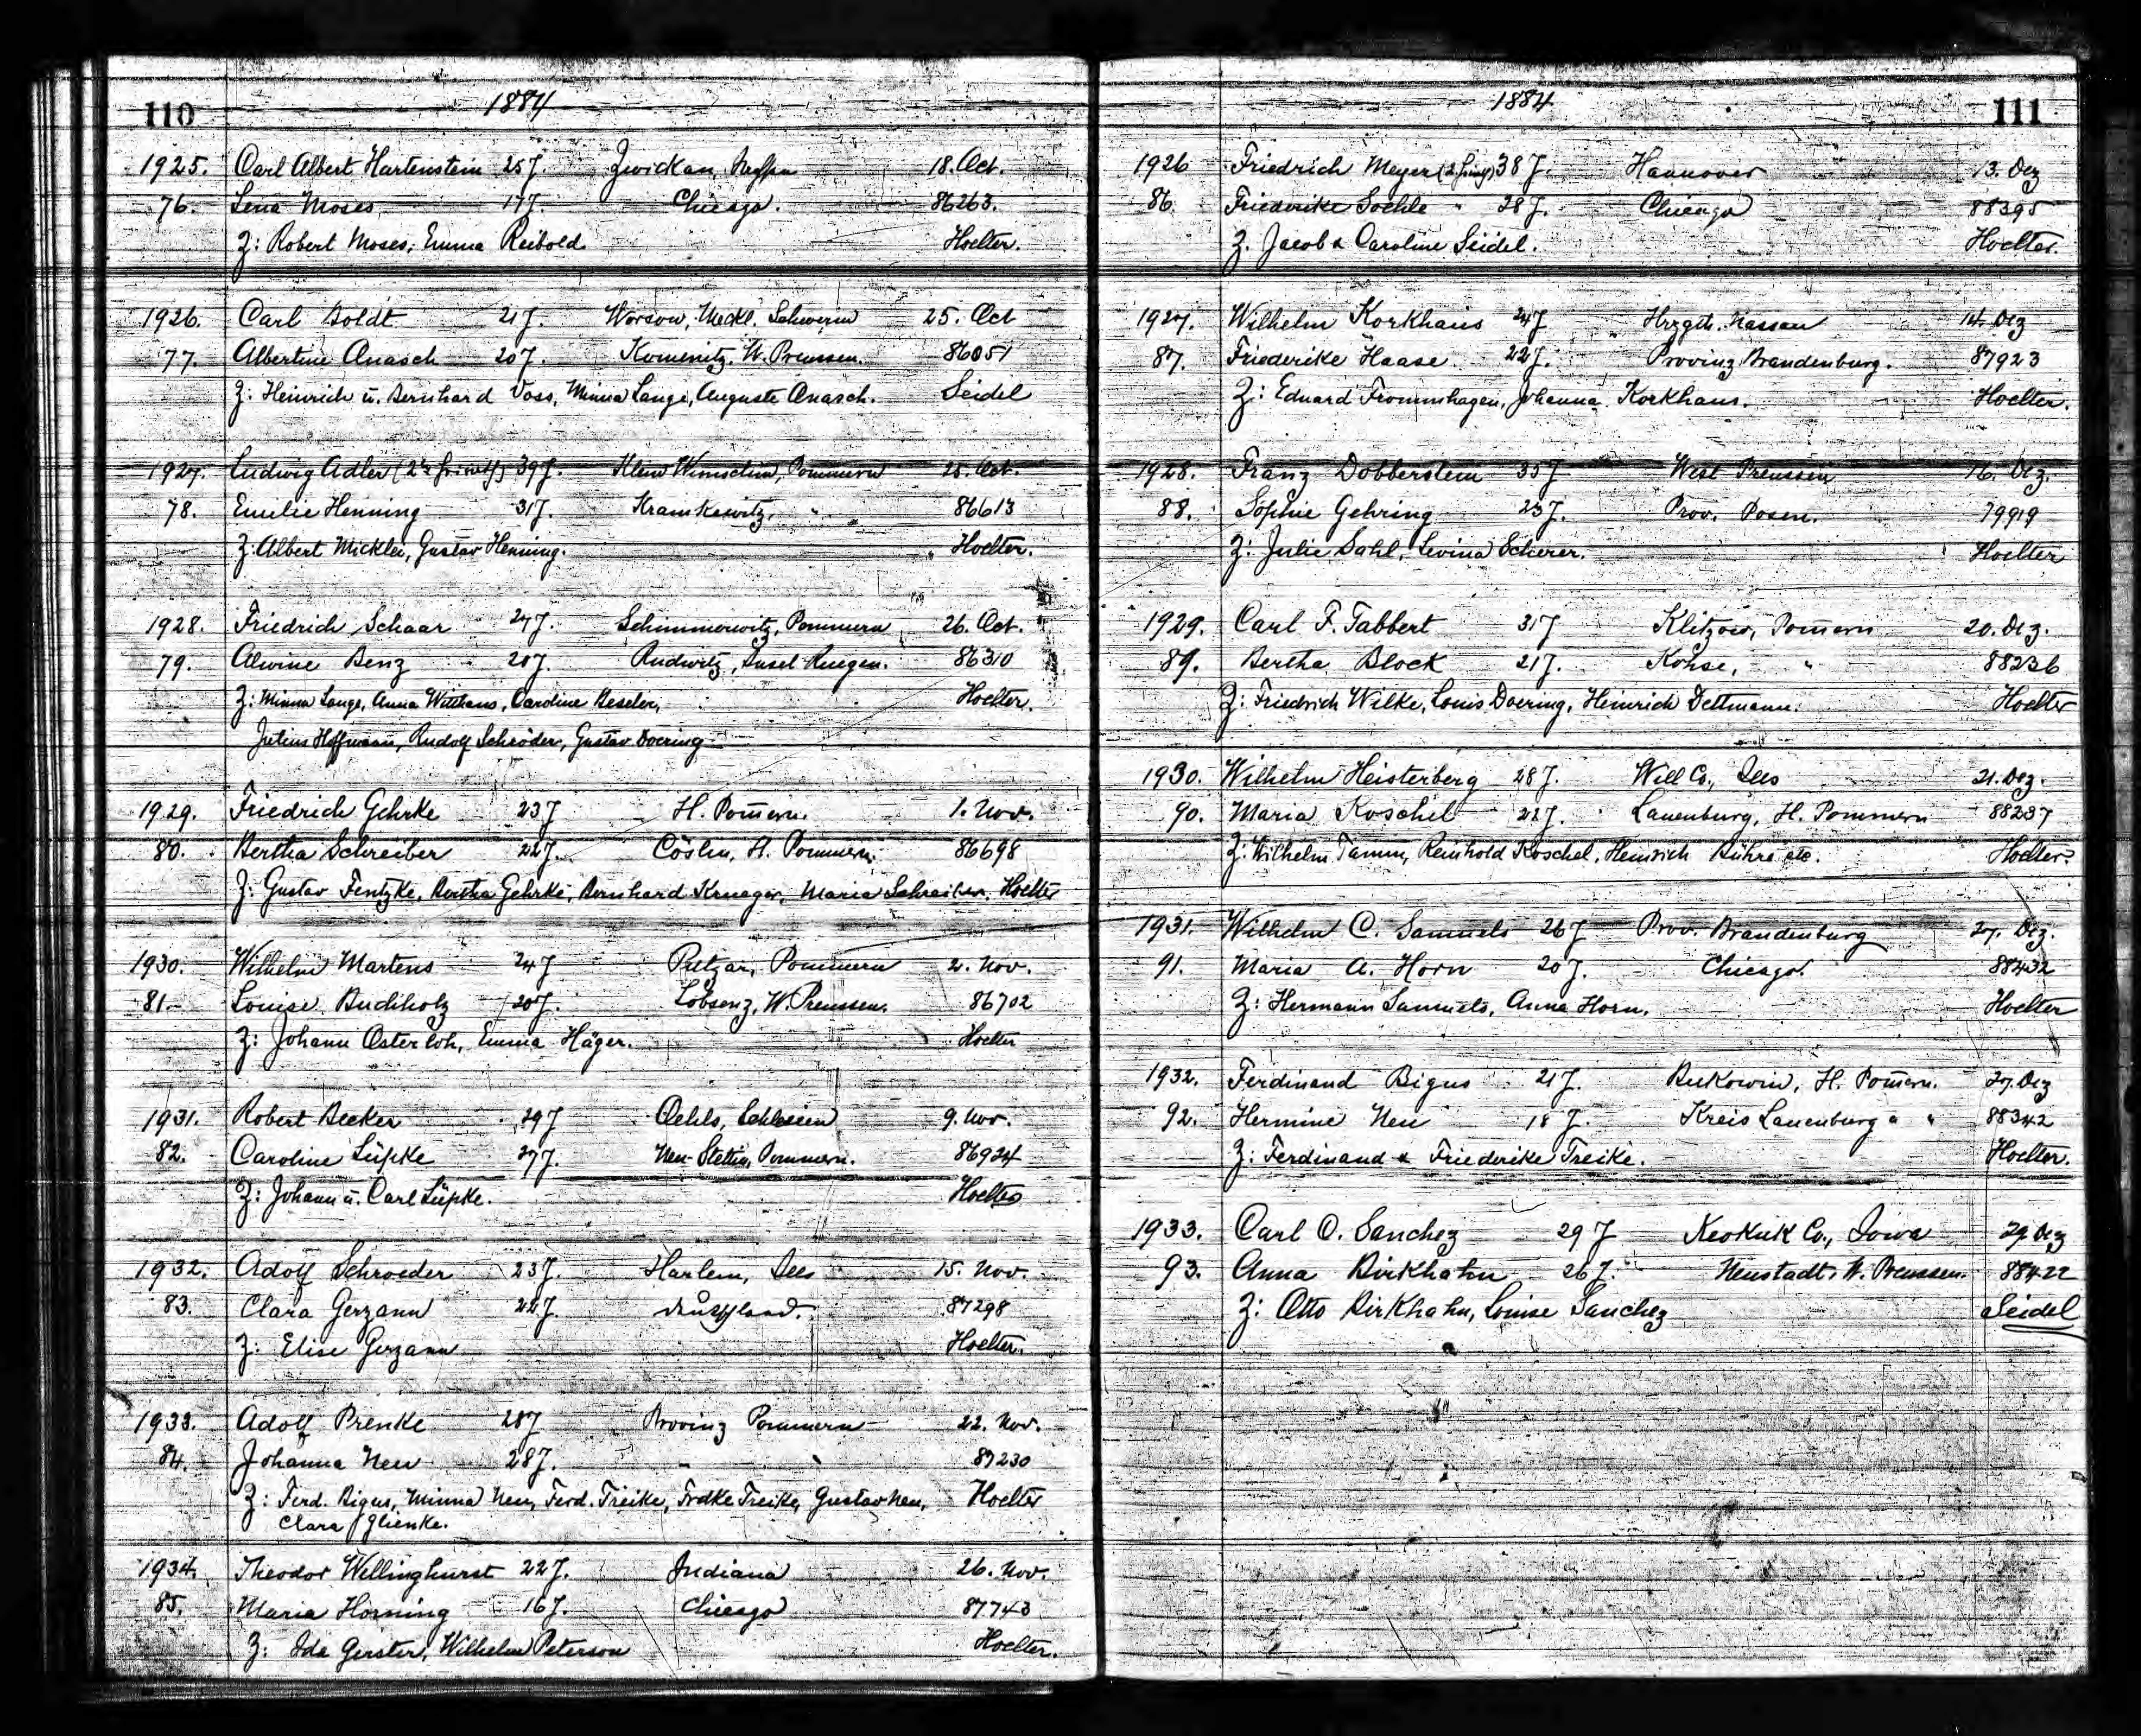 110 1884
1925. Carl Albert Hartenstein 25 J. Zwickau, 18. Oct.
76. Lena Moses 17 J. Chicago. 86263.
Z: Robert Moses, Emma Reibold Hoelter.
1926. Carl Boldt 21 J. Worsow, Meckl. Schwerin 25. Oct
77. Albertine Anasch 20 J. Komenitz, W. Preussen. 86051
Z: Heinrich u. Bernhard Voss, Minna Lange, Auguste Anasch. Seidel
1927. Ludwig Adler 39 J. Klein Pommern 25. Oct.
78. Emilie Henning 31 J. Kramkewitz, " 86613
Z: Albert Mickley, Gustav Henning. Hoelter.
1928. Friedrich Schaar 27 J. Schimmerwitz, Pommern 26. Oct.
79. Alwine Benz 20 J. Rudwitz, Insel Ruegen. 86310
Z: Minna Lange, Anna Witthaus, Caroline Beseler, Hoelter.
Julius Hoffmann, Rudolf Schröder, Gustav Doering
1929. Friedrich Gehrke 23 J H. Pom̄ern. 1. Nov.
80. Bertha Schreiber 22 J. Cöslin, H. Pommern. 86698
Z: Gustav Fentzke, Bertha Gehrke, Bernhard Krueger, Maria Schreiber. Hoelter
1930. Wilhelm Martens 24 J Putzar, Pommern 2. Nov.
81 Louise Buchholz 20 J. Lobsenz, W. Preussen. 86702
Z: Johann Osterloh, Emma Häger. Hoelter
1931. Robert Becker 29 J Oehls, Schlesien 9. Nov.
82. Caroline Lüpke 27 J. Neu-Stettin, Pommern. 86924
Z: Johann u. Carl Lüpke. Hoelter
1932. Adolf Schroeder 23 J. Harlem, Ills 15. Nov.
83. Clara Gerzann 22 J. Deutschland. 87298
Z: Elise Gerzann Hoelter.
1933. Adolf Prenke 28 J Provinz Pommern 22. Nov.
84. Johanna Neu 28 J. " " 87230
Z: Ferd. Bigus, Minna Neu, Ferd. Treike, Frdke Treike, Gustav Neu, Hoelter
Clara Glienke.
1934. Theodor Wellinghurst 22 J. Indiana 26. Nov.
85. Maria Horning 16 J. Chicago 87743
Z: Ida Gerster, Wilhelm Peterson Hoelter.
1884 111
1926 Friedrich Meyer 38 J. Hannover 13. Dez
86 Friederike Soehle " 28 J. Chicago 88395
Z. Jacob & Caroline Seidel. Hoelter.
1927. Wilhelm Korkhaus 24 J Hrzgth. Nassau 14. Dez
87. Friederike Haase 22 J. Provinz Brandenburg. 87923
Z: Eduard Frommhagen, Johanna Korkhaus. Hoelter.
1928. Franz Dobberstein 35 J West Preussen 16. Dez.
88. Sophie Gehring 23 J. Prov. Posen. 79919
Z: Julie Sahl, Levina Scherer. Hoelter
1929. Carl F. Tabbert 31 J Klitzow, Pom̄ern 20. Dez.
89. Bertha Block 21 J. Kohse, " 88236
Z: Friedrich Wilke, Louis Doering, Heinrich Dettmann. Hoelter
1930. Wilhelm Heisterberg 28 J. Will Co., Ills 21. Dez.
90. Maria Koschel 22 J. Lauenburg, H. Pommern 88237
Z: Wilhelm Tamm, Reinhold Koschel, Heinrich Bühre etc. Hoelter
1931. Wilhelm C. Samuels 26 J Prov. Brandenburg 27. Dez.
91. Maria A. Horn 20 J. Chicago. 88432
Z: Hermann Samuels, Anna Horn. Hoelter
1932. Ferdinand Bigus 21 J. Bukowin, H. Pom̄ern. 27. Dez
92. Hermine Neu 18 J. Kreis Lauenburg " " 88342
Z: Ferdinand & Friederike Treike. Hoelter.
1933. Carl O. Sanchez 29 J Keokuk Co., Iowa 29 Dez
93. Anna Birkhahn 26 J. Neustadt, W. Preussen. 88422
Z: Otto Birkhahn, Louise Sanchez Seidel